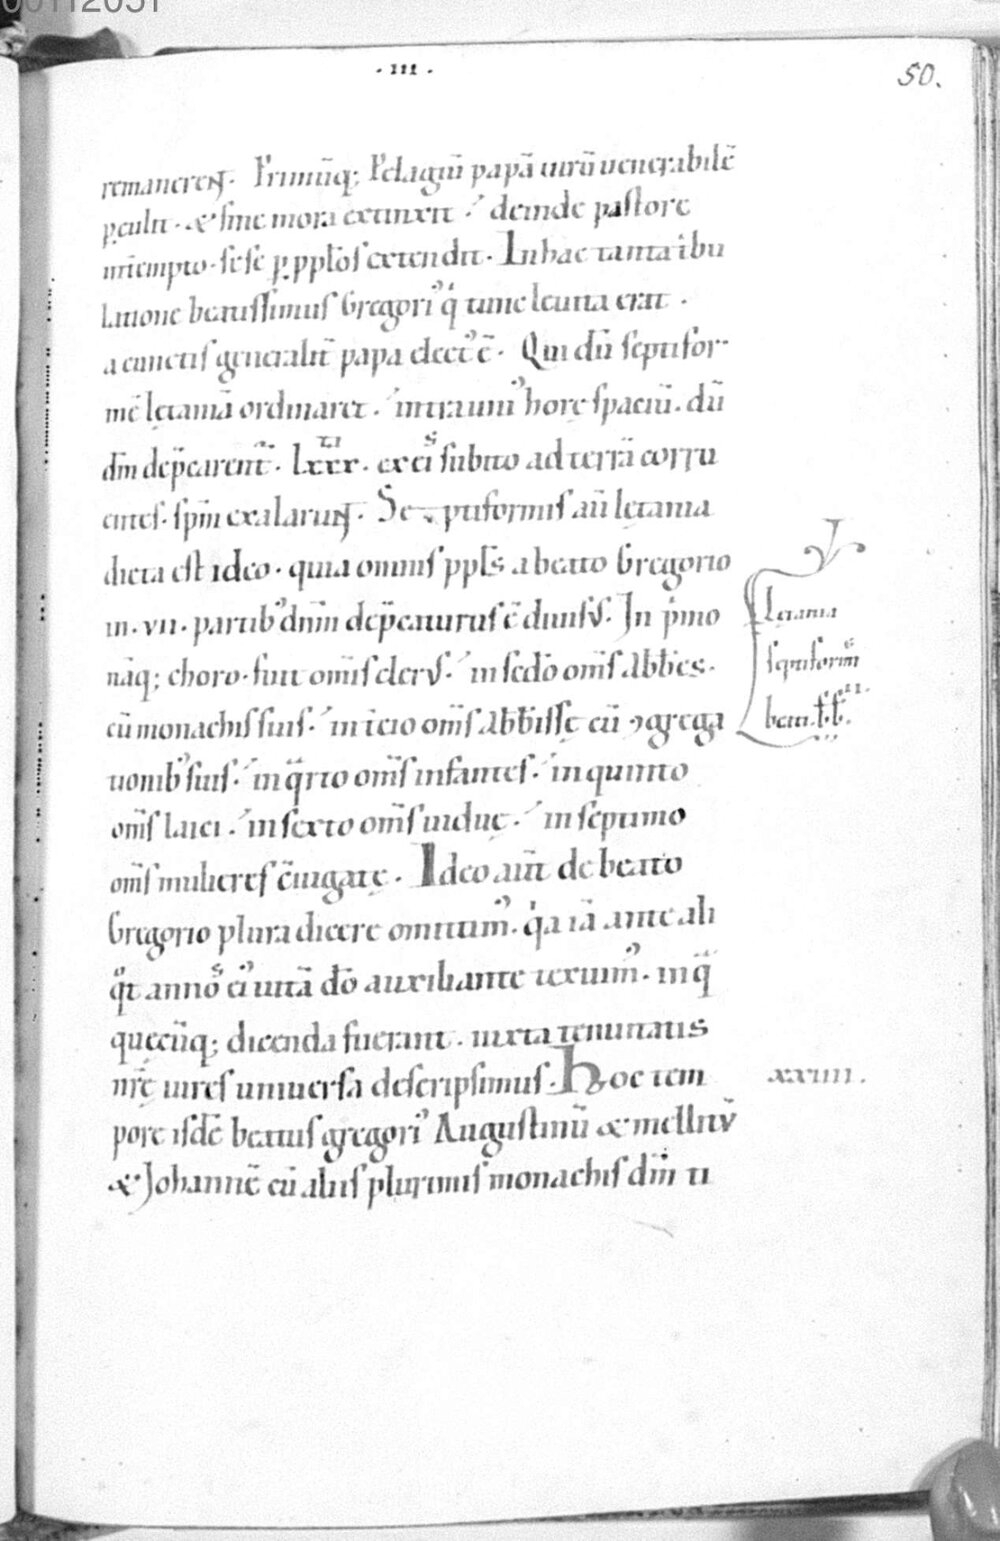 00112051
· III ·
50.
remanerent. Primūq; Pelagiū papā uirū uenerabilē
p̱culit · & sine mora extinxit ·́ deinde pastore
int̄empto · sese p̱ pp̄los extendit · In hac tanta t̄bu
latione beatissimus Gregori᾿ qͥ tunc leuita erat .
a cunctis generalit̄ papa elect᾿ ē · Qui dū septifor-
mē lętaniā ordinaret ·́ intra uni᾿ horę spaciū · dū
dn̄m dep̄carent᷒ · lxxx · ex eiͥs subito ad terrā corru
entes · sp̄m exalarunt · Septiformis aū lętania
dicta est ideo · quia omnis ppl̄s a beato Gregorio
in · vii · partib᾿ dn̄m dep̄caturus ē diuisus · In pͥmo
nāq; choro · fuit om̄is clerus ·́ in sc̄do om̄s abb̄es ·
cū monachis suis ·́ in t̄cio om̄s abb̄issę cū ꝯgrega
tionib᾿ suis ·́ in qͣrto om̄s infantes ·́ in quinto
om̄s laici ·́ in sexto om̄s uiduę ·́ in septimo
om̄s mulieres c̄iugatę · Ideo aūt de beato
Gregorio plura dicere omittim᾿ · qͥa iā ante ali
qͦt annoˢ ei᾿ uitā dō auxiliante texuim᾿ · in qͣ
quęcūq; dicenda fuerant · iuxta tenuitatis
nr̄ę uires uniuersa descripsimus · Hoc tem
pore isdē beatus gregori᾿ Augustinū & mellitū
& Johannē cū aliis plurimis monachis dn̄m ti
Lętania
septiformˢ
beati
xxiiii .